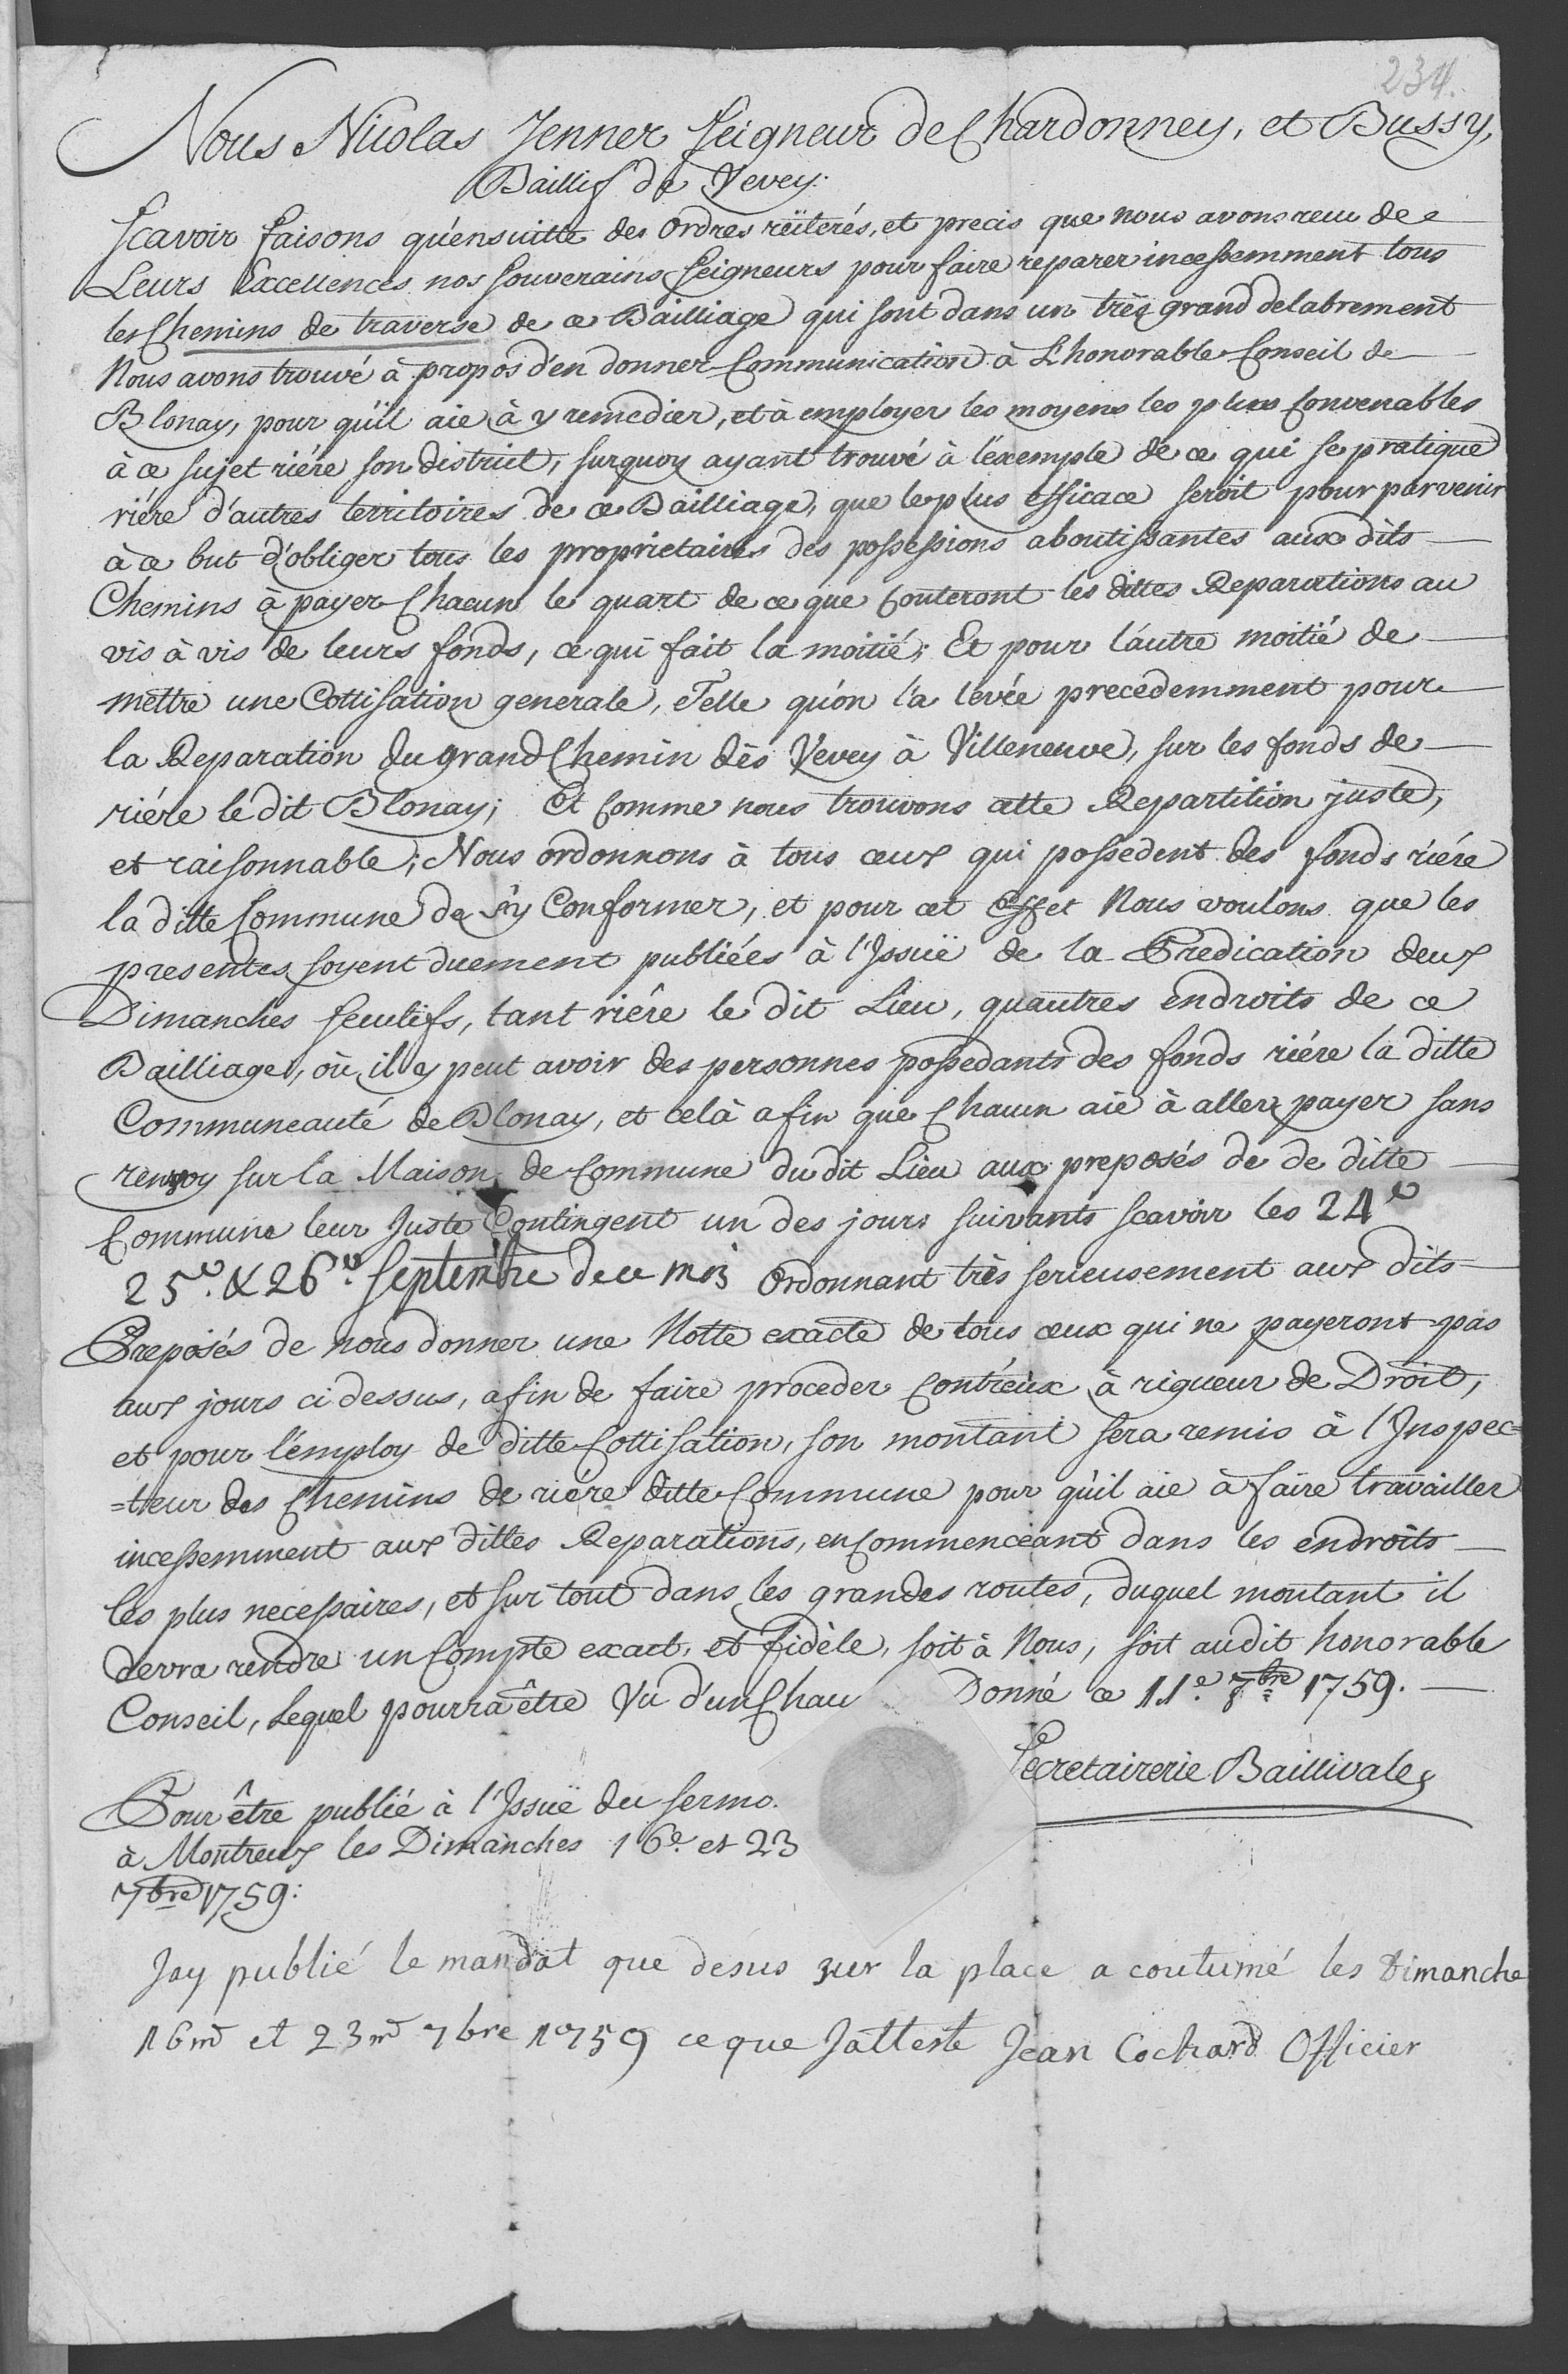 234.
Nous Nicolas Jenner Seigneur de Chardonney, et Bussy,
Baillif de Vevey:
Scavoir faisons qu'ensuitte des ordres reïterés, et precis que nous avons receu de
Leurs Excellences nos Souverains Seigneurs pour faire reparer incessemment tous
les Chemins de traverse de ce Bailliage qui sont dans un très grand delabrement
Nous avons trouvé à propos d'en donner Communication à L'honorable Conseil de
Blonay, pour qu'il aie à y remedier, et à employer les moyens les plus Convenables
à ce sujet riére son district, surquoy ayant trouvé à l'éxemple de ce qui se pratique
riére d'autres territoires de ce Bailliage, que le plus efficace seroit pour parvenir
à ce but d'obliger tous les proprietaires des possessions aboutissantes aux dits
Chemins à payer Chacun le quart de ce que Couteront les dittes Reparations au
vis à vis de leurs fonds, ce qui fait la moitié; Et pour l'autre moitié de
mettre une Cottisation generale, Telle qu'on l'a levée precedemment pour
la Reparation du grand Chemin dès Vevey à Villeneuve, sur les fonds de
riére le dit Blonay; Et Comme nous trouvons cette Repartition juste,
et raisonnable; Nous ordonnons à tous ceux qui possedent des fonds riére
la ditte Commune de s'y Conformer, et pour cet effet Nous voulons que les
presentes soyent duement publiées à l'Issuë de la Predication deux
Dimanches secutifs, tant riére le dit Lieu, quautres endroits de ce
Bailliage, où il y peut avoir des personnes possedants des fonds riére la ditte
Communeauté de Blonay, et celà afin que Chacun aie à aller payer sans
renvoy sur la Maison de Commune du dit Lieu aux preposés de de ditte
Commune leur Juste Contingent un des jours suivants scavoir les 24e
25e. & 26e. Septembre de ce mois Ordonnant très serieusement aux dits
Preposés de nous donner une Notte exacte de tous ceux qui ne payeront pas
aux jours ci dessus, afin de faire proceder Contr'eux à rigueur de Droit,
et pour l'employ de ditte Cottisation, son montant sera remis à l'Inspec=
=teur des Chemins de riére ditte Commune pour qu'il aie à faire travailler
incessemment aux dittes Reparations, en Commenceant dans les endroits
les plus necessaires, et sur tout dans les grandes routes, duquel montant il
devra rendre un Compte exact, et fidèle, soit à Nous, soit audit honorable
Conseil, Lequel pourra être Vû d'un Chau Donné ce 11e. 7bre 1759.
Secretairerie Baillivale
Pour être publié à l'Issuë du sermo.
à Montreux les Dimanches 16e. et 23
7bre 1759:
Jay publié le mandat que desus sur la place a coutumé les Dimanche
16me et 23me 7bre 1759 ce que Jatteste Jean Cochard Officier